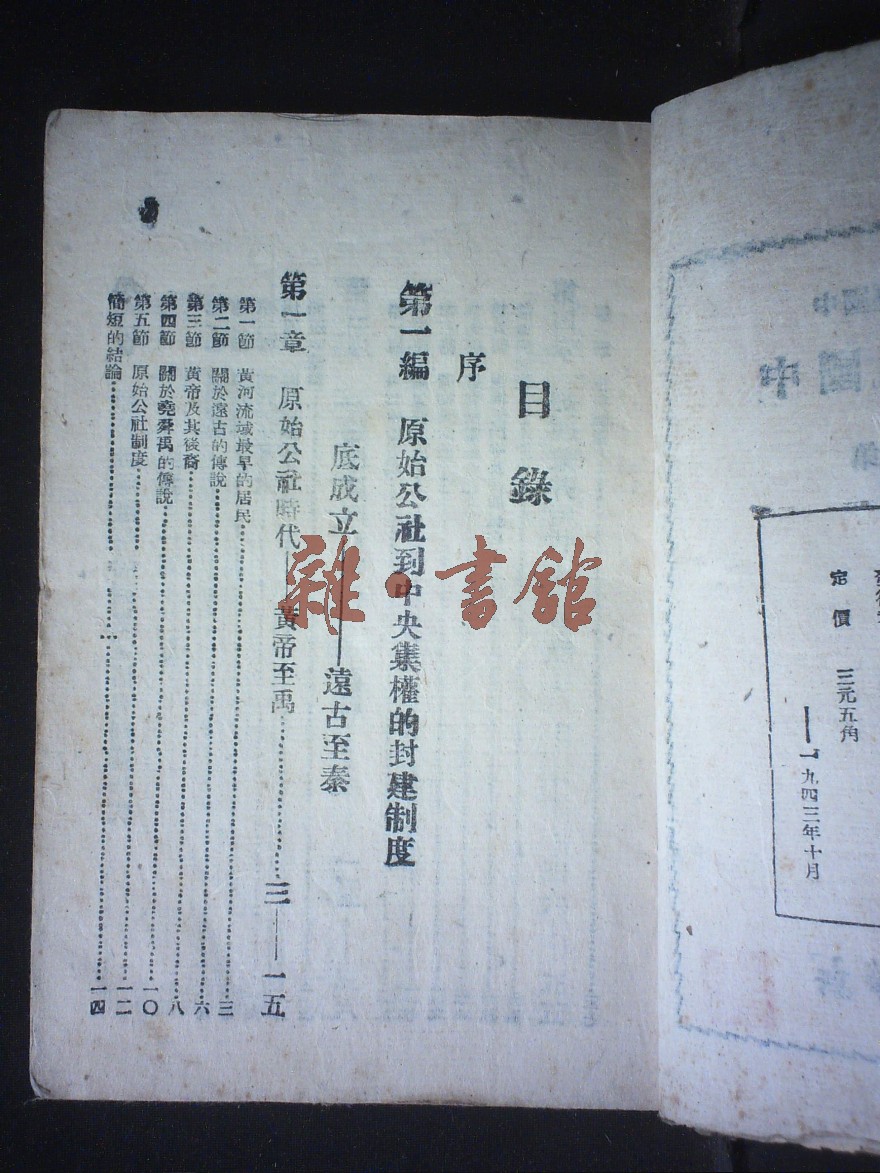 定價 三元五角
一九四三年十月
目錄
序
第一編 原始公社到中央集權的封建制度
底成立——遠古至秦
第一章 原始公社時代——黃帝至禹……三——一五
第一節 黃河流域最早的居民……三
第二節 關於遠古的傳說……六
第三節 黃帝及其後裔……八
第四節 關於堯舜禹的傳說……一〇
第五節 原始公社制度……一二
簡短的結論……一四
雜·書館